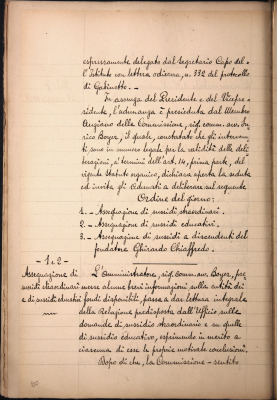 espressamente delegato dal Segretario Capo del-
l'Istituto con lettera odierna, n. 332 del protocollo
di Gabinetto. -
In assenza del Presidente e del Vicepre-
sidente, l'adunanza è presieduta dal Membro
Anziano della Commissione, sig. comm. avv. En-
rico Boyer, il quale, constatato che gli interve-
nuti sono in numero legale per la validità delle deli-
berazioni, ai termini dell'art. 14, prima parte, del
vigente Statuto organico, dichiara aperta la seduta
ed invita gli adunati a deliberare sul seguente
Ordine del giorno:
1. - Assegnazione di sussidi straordinari.
2. - Assegnazione di sussidi educativi.
3. - Assegnazione di sussidi a discendenti del
fondatore Ghirardo Chiaffredo.
- 1 e 2 -
Assegnazione di
sussidi straordinari
e di sussidi educativi
L'Amministratore, sig. comm. avv. Boyer, pre-
messe alcune brevi informazioni sulla entità dei
fondi disponibili, passa a dar lettura integrale
della Relazione predisposta dall'Ufficio sulle
domande di sussidio straordinario e su quelle
di sussidio educativo, esprimendo in merito a
ciascuna di esse le proprie motivate conclusioni.
Dopo di che, la Commissione - sentito